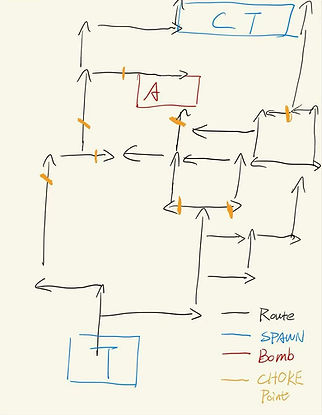 C T
A
T
Route
SPAWN
Bomb
CHOKE
Points